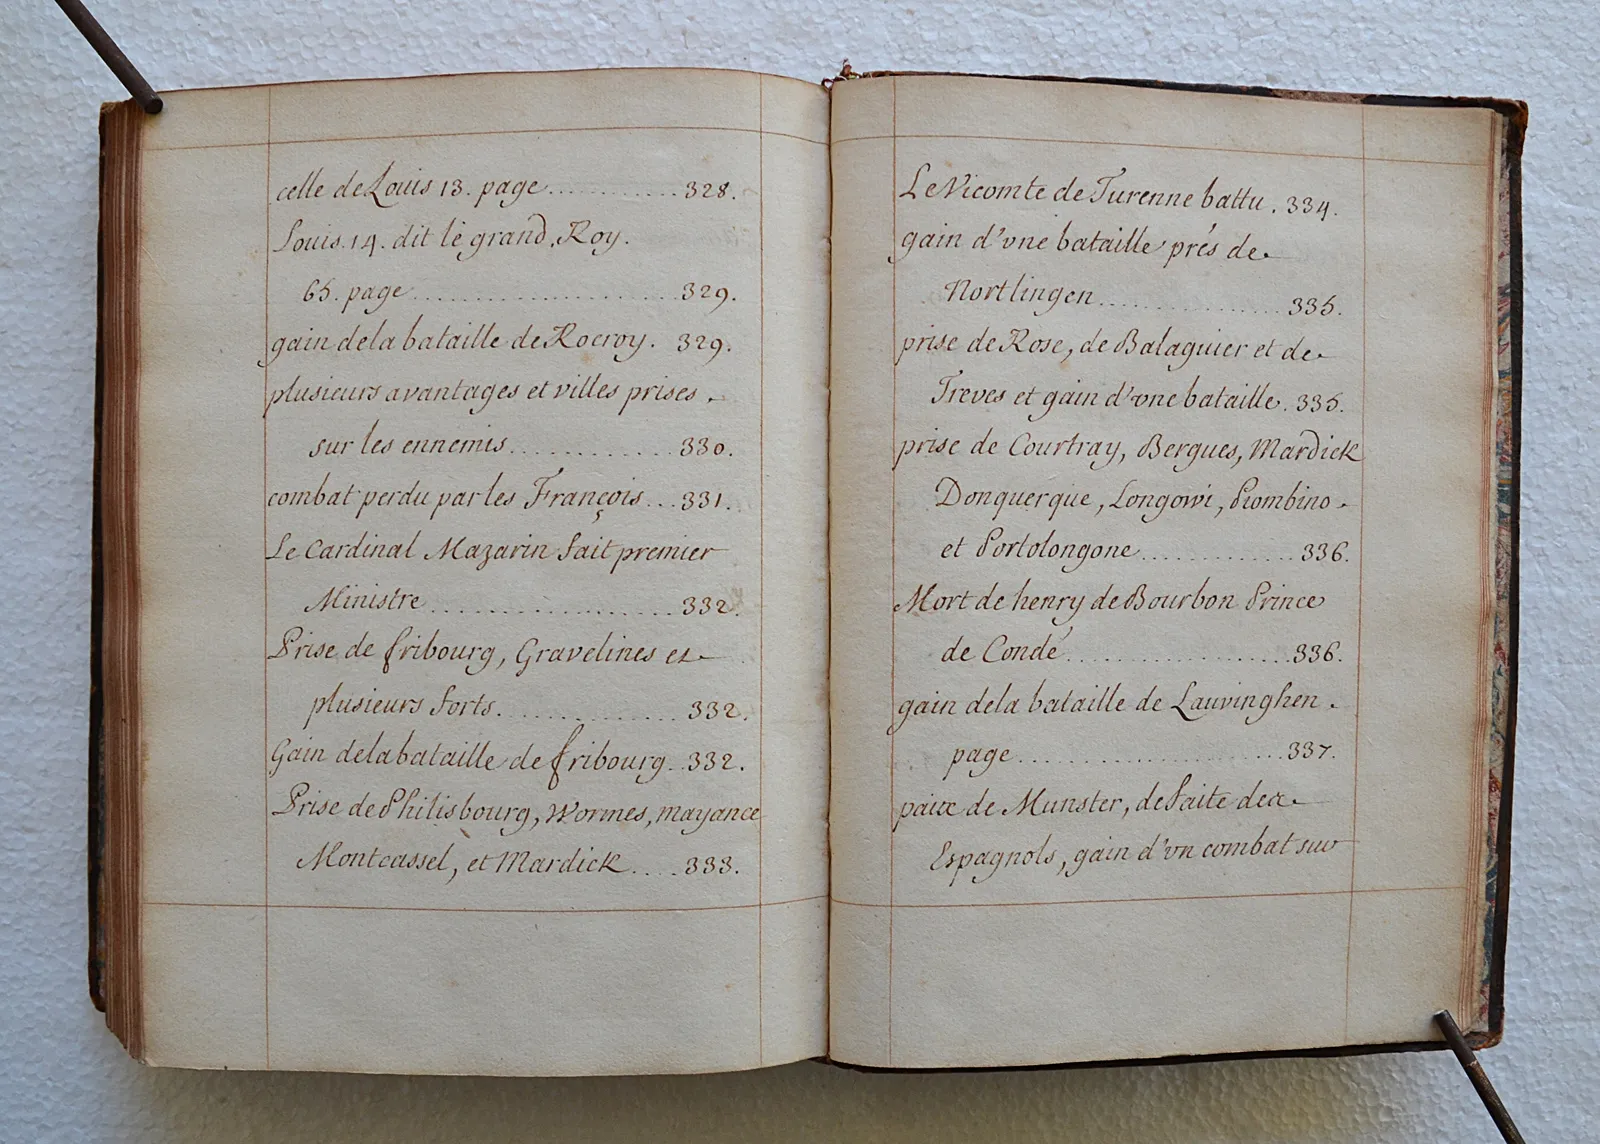 celle de Louis 13. page ............ 328.
Louis. 14. dit le grand, Roy.
65. page ..................... 329.
gain dela bataille de Rocroy. 329.
plusieurs avantages et villes prises.
sur les ennemis ............. 330.
combat perdu par les François ... 331.
Le Cardinal Mazarin fait premier
Ministre ................... 332.
Prise de fribourg, Gravelines et
plusieurs forts .............. 332.
Gain dela bataille de fribourg. 332.
Prise de Philisbourg, Wormes, mayance
Montcassel, et Mardick .... 333.
Le Vicomte de Turenne battu. 334.
gain d'vne bataille prés de
Nortlingen .............. 335.
prise de Rose, de Balaguier et de
Treves et gain d'vne bataille. 335.
prise de Courtray, Bergues, Mardick
Donquerque, Longowi, Piombino
et Portolongone ........... 336.
Mort de henry de Bourbon Prince
de Condé ................. 336.
gain dela bataille de Lauvinghen.
page .................... 337.
paix de Munster, defaite des
Espagnols, gain d'vn combat sur